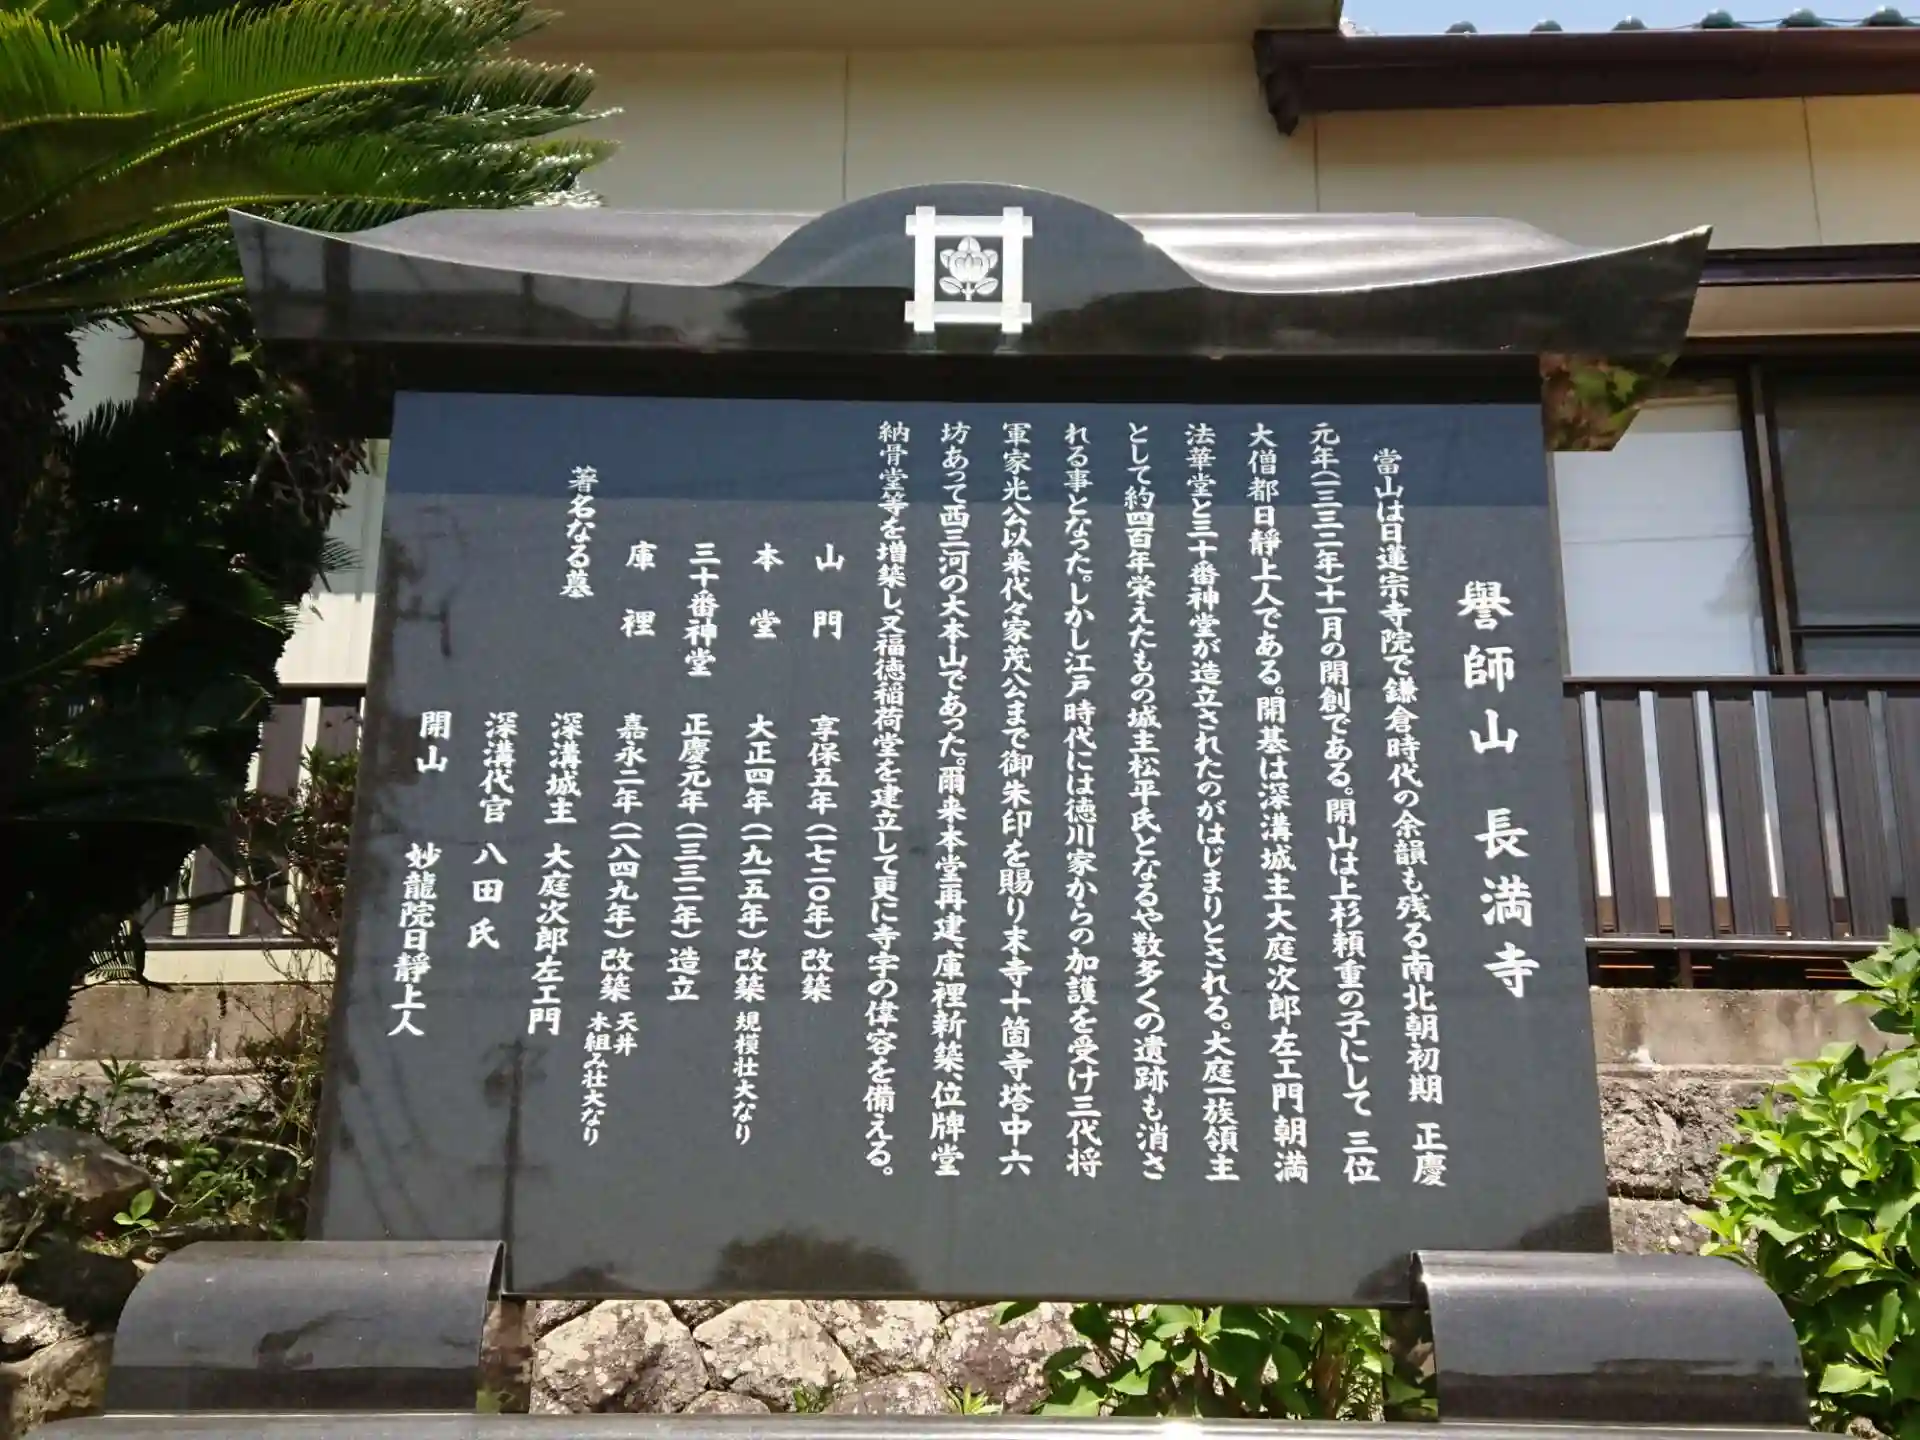 譽師山 長満寺
當山は日蓮宗寺院で鎌倉時代の余韻も残る南北朝初期 正慶
元年(一三三二年)十一月の開創である。開山は上杉頼重の子にして 三位
大僧都日靜上人である。開基は深溝城主大庭次郎左エ門朝満
法華堂と三十番神堂が造立されたのがはじまりとされる。大庭一族領主
として約四百年栄えたものの城主松平氏となるや数多くの遺跡も消さ
れる事となった。しかし江戸時代には徳川家からの加護を受け三代将
軍家光公以来代々家茂公まで御朱印を賜り末寺十箇寺塔中六
坊あって西三河の大本山であった。爾来本堂再建、庫裡新築、位牌堂
納骨堂等を増築し、又福徳稲荷堂を建立して更に寺宇の偉容を備える。
山門 享保五年(一七二〇年)改築
本堂 大正四年(一九一五年)改築 規模壮大なり
三十番神堂 正慶元年(一三三二年)造立
庫裡 嘉永二年(一八四九年)改築 天井木組み壮大なり
著名なる墓 深溝城主 大庭次郎左エ門
深溝代官 八田氏
開山 妙龍院日靜上人